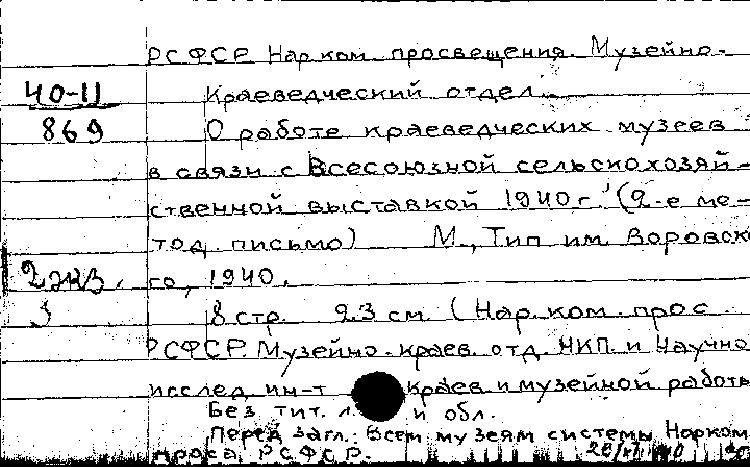 РСФСР Нар. ком. просвещения. Музейно-
40-11 Краеведческий отдел.
869 О работе краеведческих музеев
в связи с Всесоюзной сельскохозяй-
ственной выставкой 1940 г. (2-е ме-
тод. письмо) М., Тип им. Воровско
2 экз. го, 1940.
8 стр. 23 см. (Нар. ком. прос.
РСФСР. Музейно-краев. отд. НКП. и Научно
исслед. ин-т краев и музейной работы
Без тит. л. и обл.
Перед загл.: Всем музеям системы Нарком
проса РСФСР.